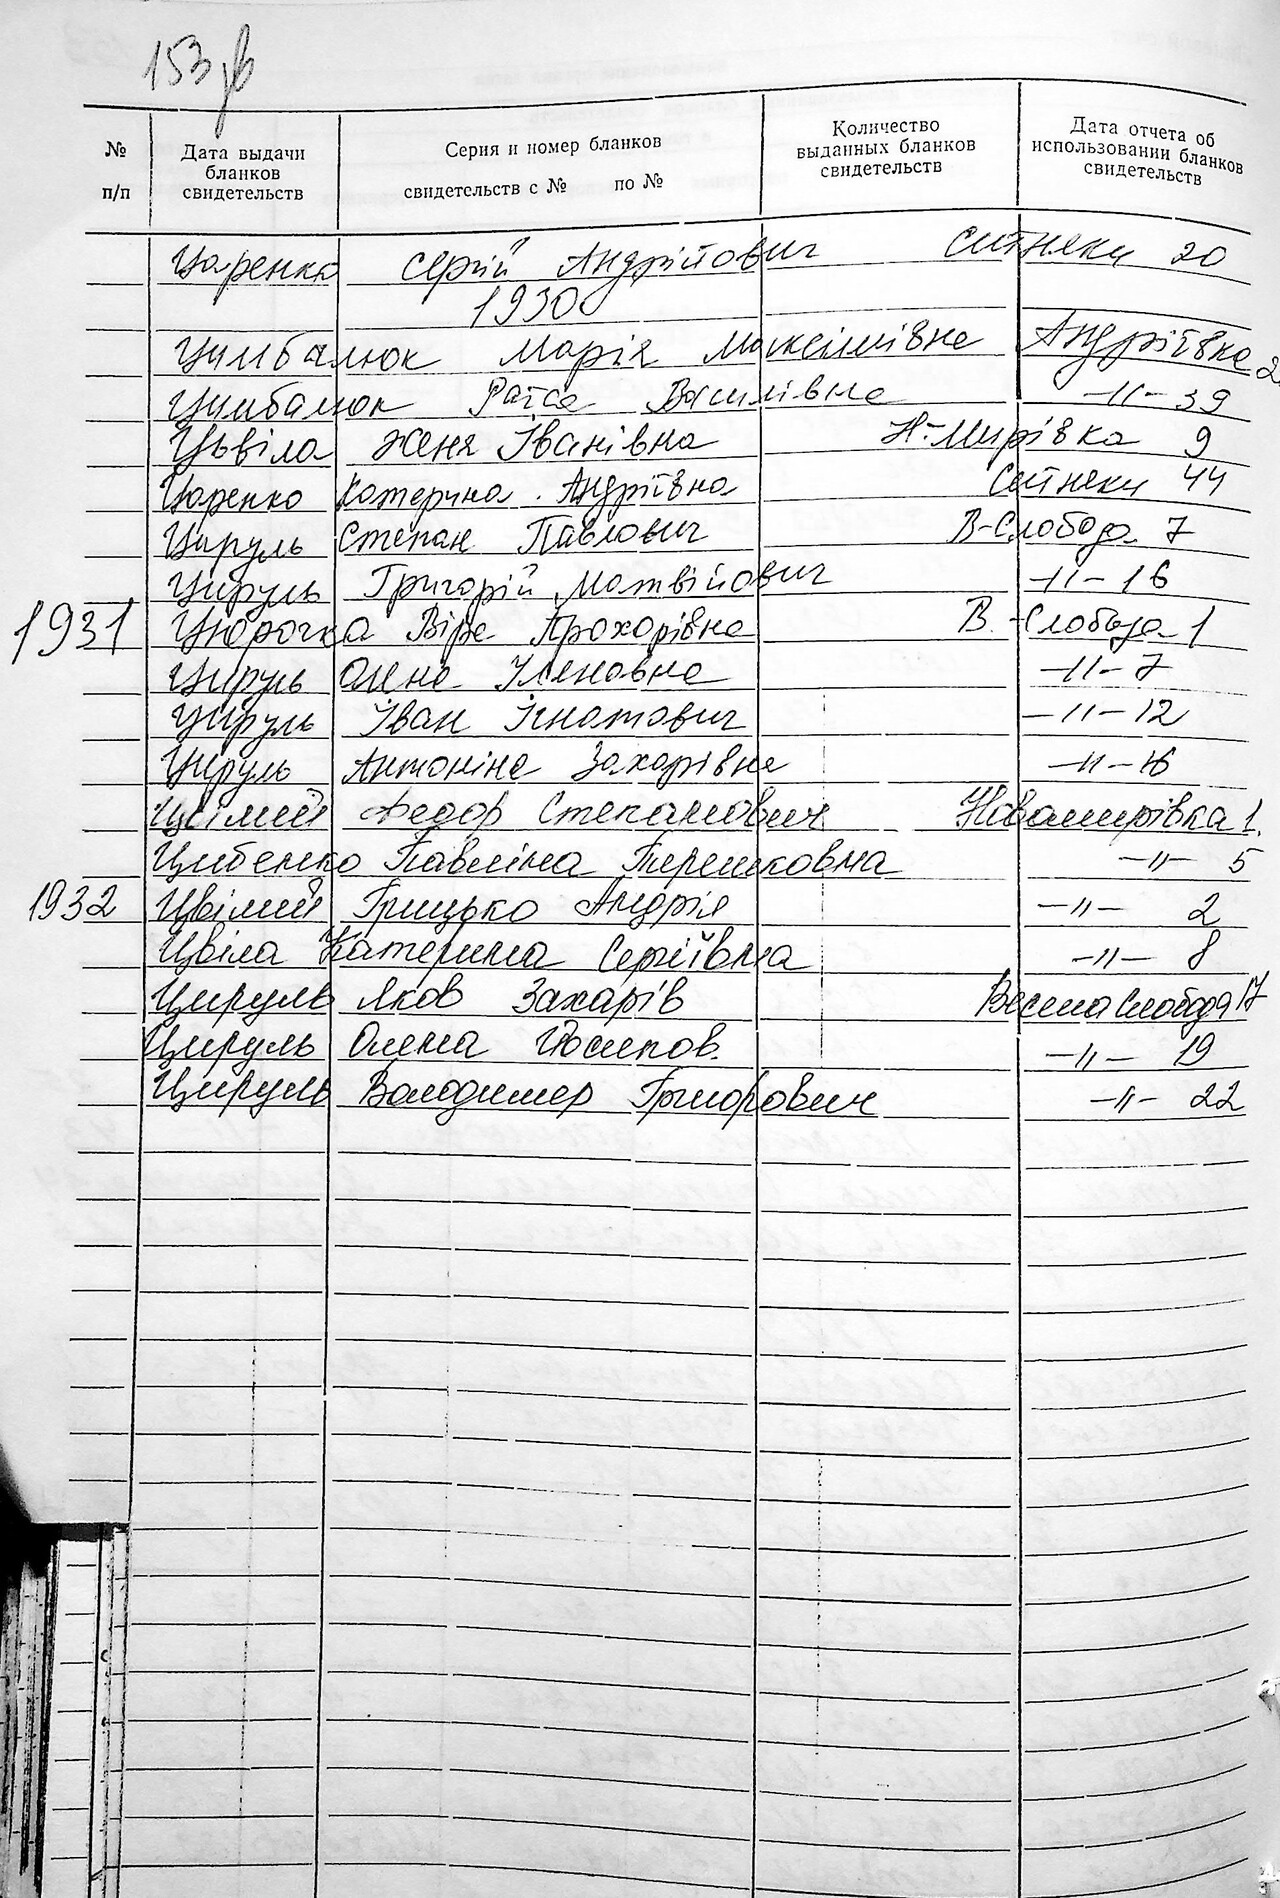 153 зв
№ п/п
Дата выдачи бланков свидетельств
Серия и номер бланков свидетельств с № по №
Количество выданных бланков свидетельств
Дата отчета об использовании бланков свидетельств
Царенко Сергій Андрійович Ситняки 20
1930
Цимбалюк Марія Максимівна Андріївка 2
Цимбалюк Раїса Василівна -〃- 39
Цьвіла Женя Іванівна Н-Мирівка 9
Царенко Катерина Андріївна Ситняки 44
Цируль Степан Павлович В-Слобода 7
Цируль Григорій Матвійович -〃- 16
1931 Цюрочка Віра Прохорівна В.-Слобода 1
Цируль Олена Уляновна -〃- 7
Цируль Іван Ігнатович -〃- 12
Цируль Антоніна Захарівна -〃- 16
Цвілий Федор Степанович Новомирівка 1.
Цибенко Павліна Терешковна -〃- 5
1932 Цвілий Грицько Андрія -〃- 2
Цвіла Катерина Сергіївна -〃- 8
Цируль Яков Захарів Весела Слобода 17
Цируль Олена Йосипов. -〃- 19
Цируль Володимер Григорович -〃- 22